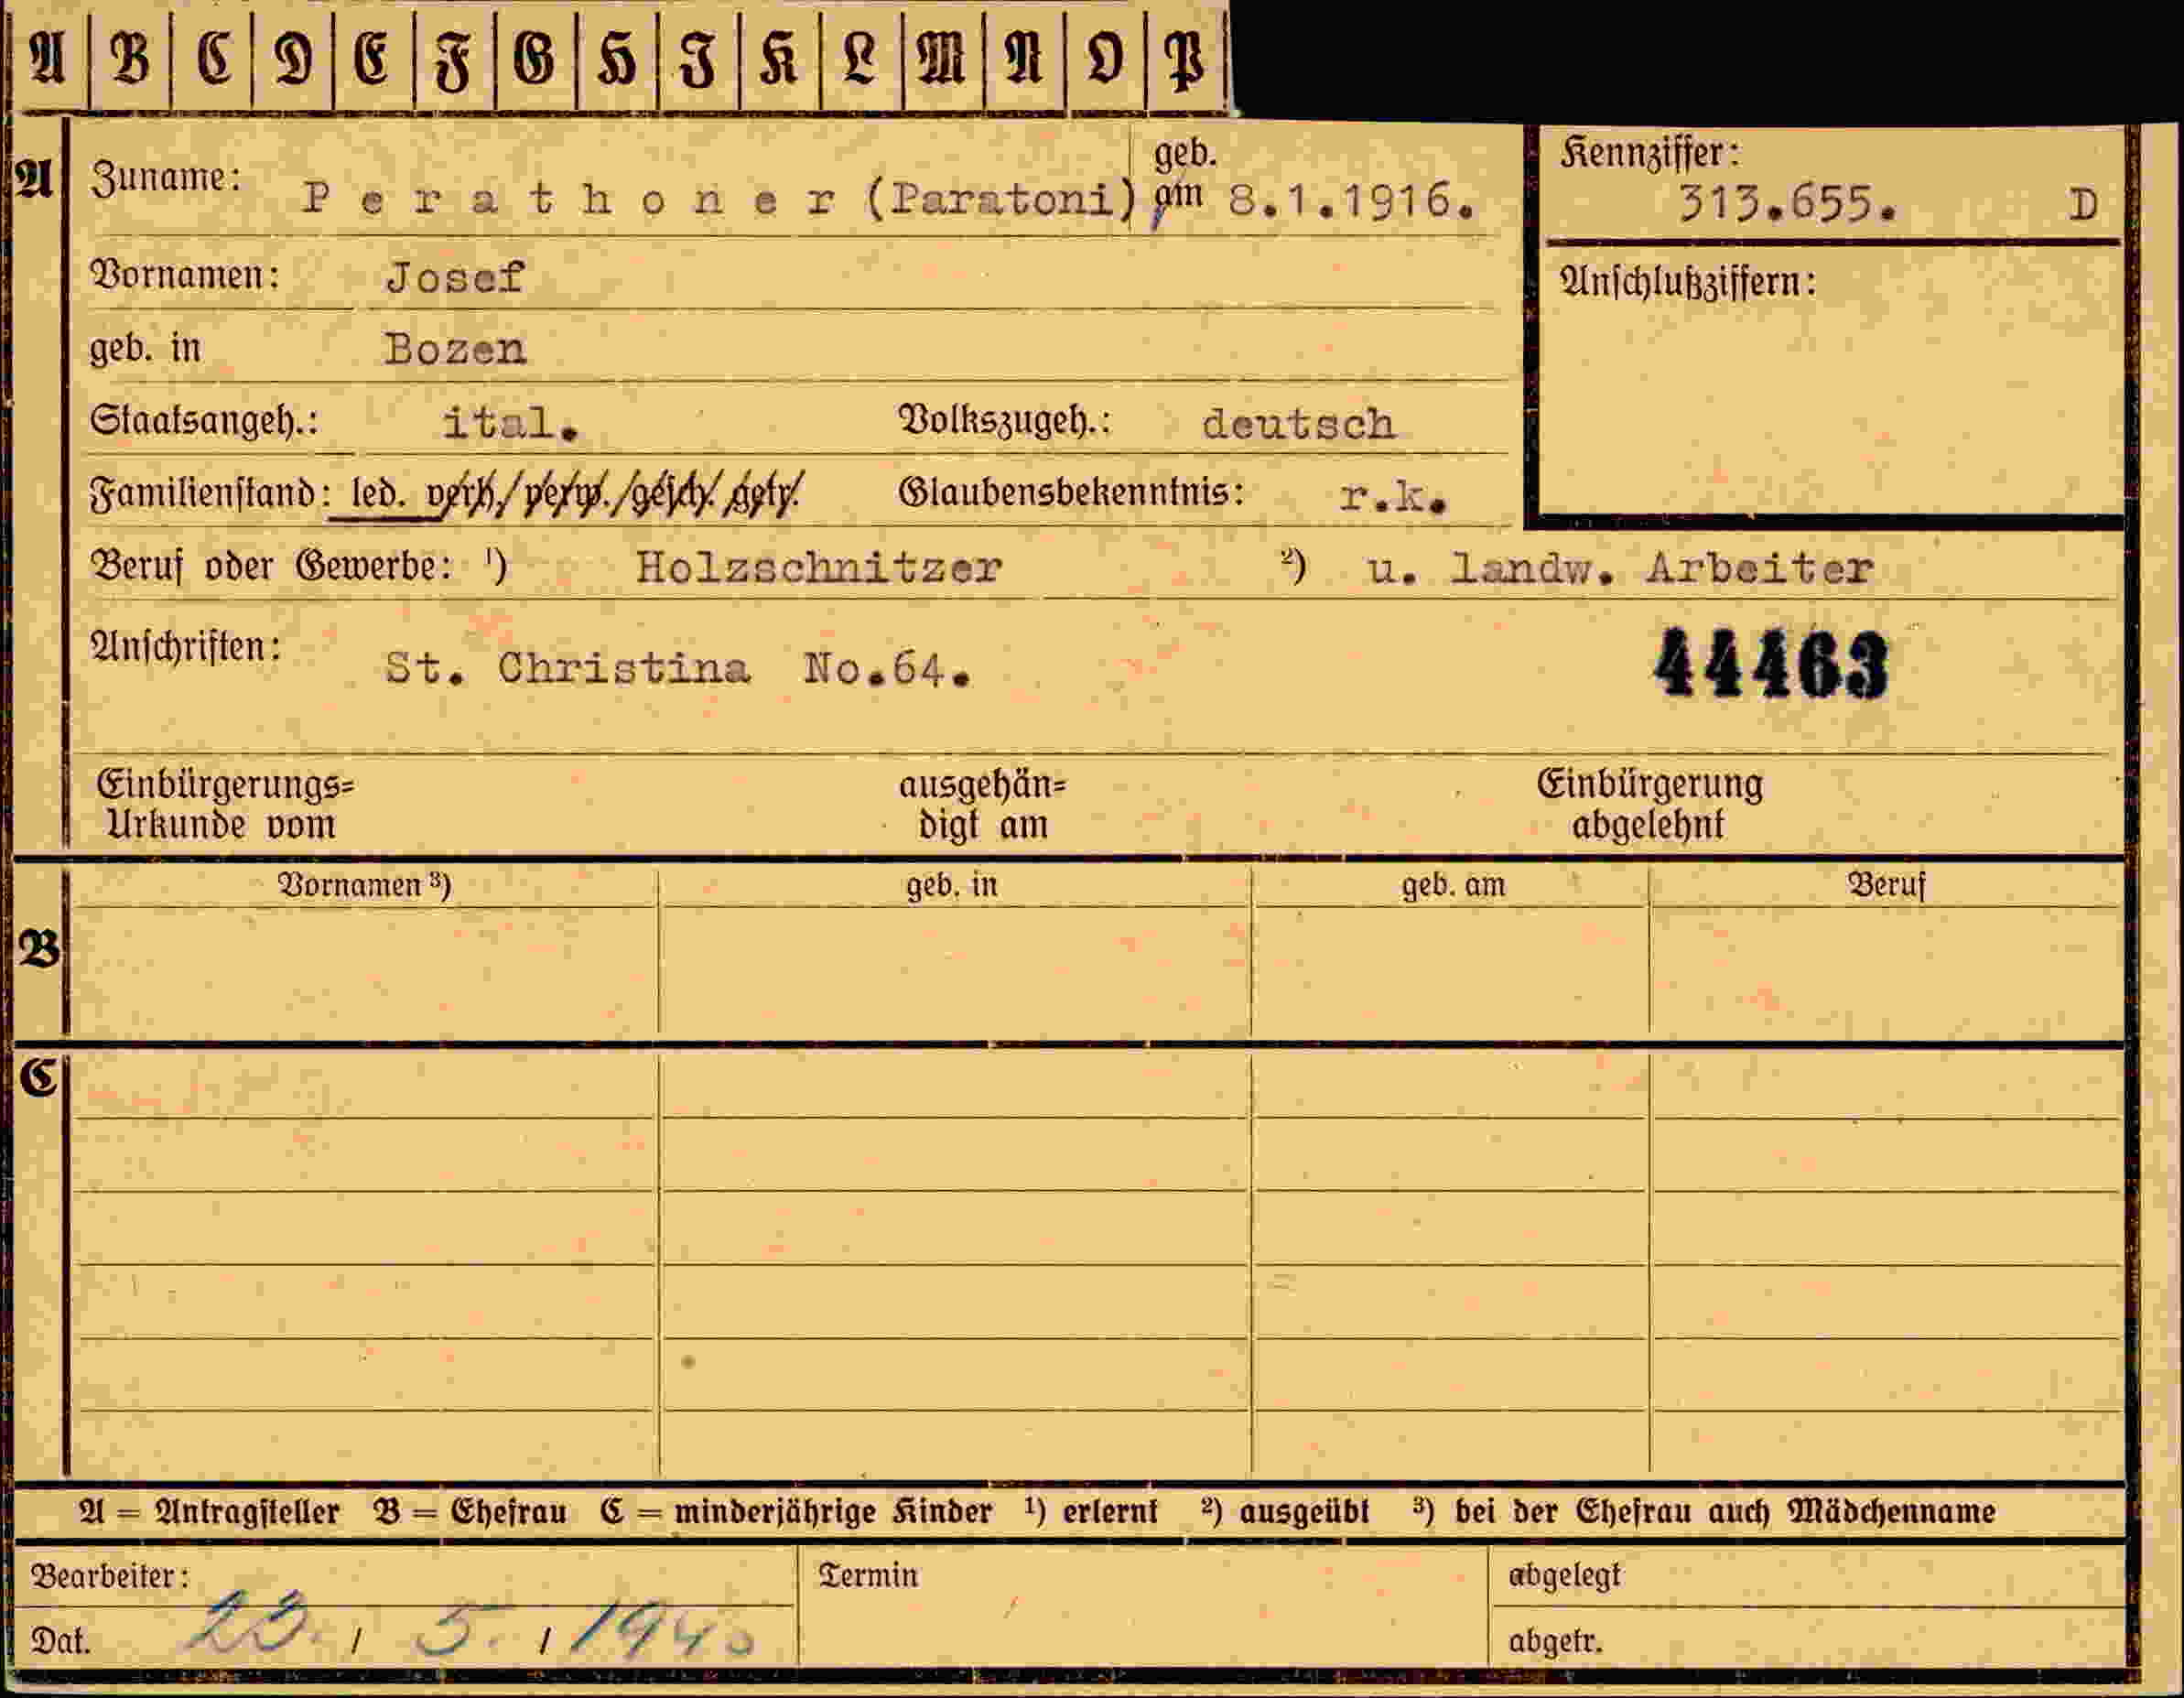 A B C D E F G H I K L M N O P
A Zuname: Perathoner (Paratoni) geb. am 8.1.1916. Kennziffer: 313.655. D
Vornamen: Josef Anschlußziffern:
geb. in Bozen
Staatsangeh.: ital. Volkszugeh.: deutsch
Familienstand: led. verh./verw./gesch. getr. Glaubensbekenntnis: r.k.
Beruf oder Gewerbe: ¹) Holzschnitzer ²) u. landw. Arbeiter
Anschriften: St. Christina No.64. 44463
Einbürgerungs= ausgehän= Einbürgerung
Urkunde vom digt am abgelehnt
Vornamen ³) geb. in geb. am Beruf
B
C
A = Antragsteller B = Ehefrau C = minderjährige Kinder ¹) erlernt ²) ausgeübt ³) bei der Ehefrau auch Mädchenname
Bearbeiter: Termin abgelegt
Dat. 23. / 5. / 1940 abgetr.